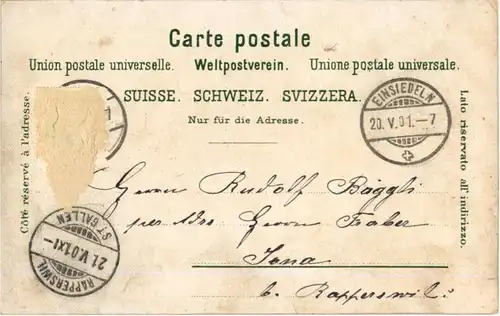 Carte postale
Union postale universelle. Weltpostverein. Unione postale universale.
SUISSE. SCHWEIZ. SVIZZERA.
Nur für die Adresse.
Côté réservé à l'adresse.
Lato riservato all' indirizzo.
EINSIEDELN
20.V.01.-7
Herrn Rudolf Bäggli
per Adrs Herrn Faber
Jona
b. Rapperswil
RAPPERSWIL
21.V.01.XI-
ST. GALLEN